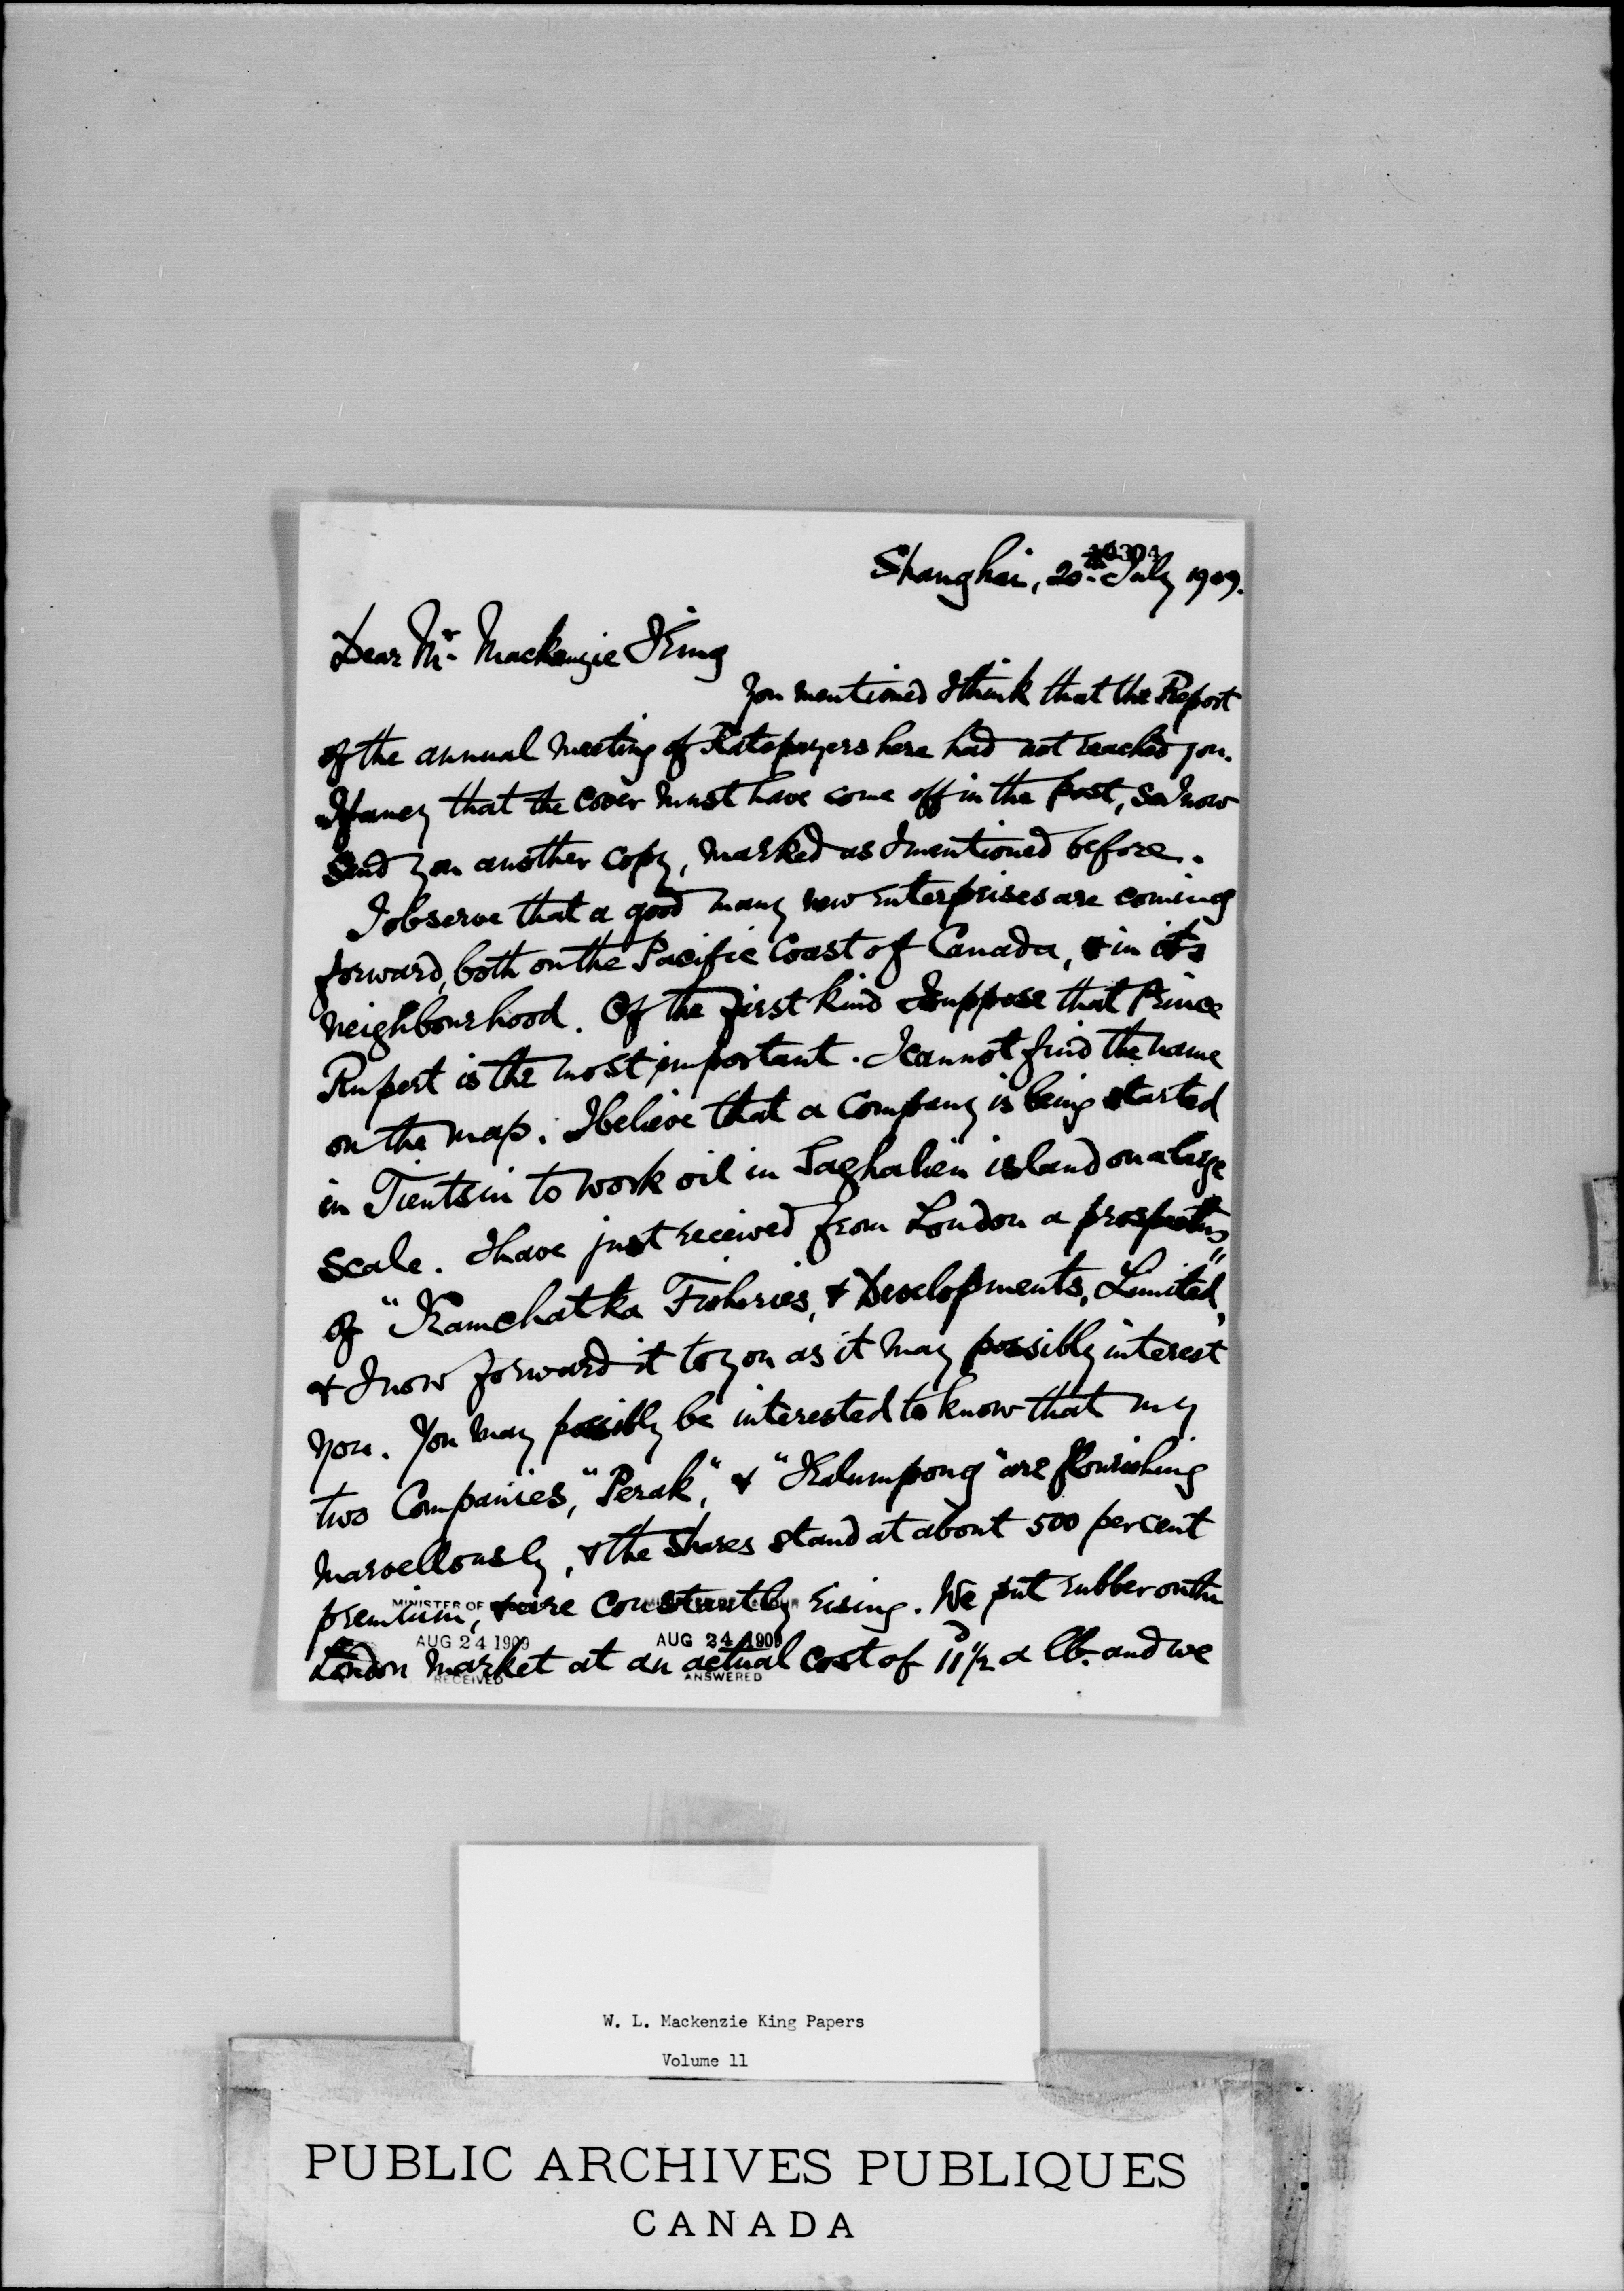 Shanghai, 20th July 1909.
Dear Mr. Mackenzie King
You mentioned I think that the Report
of the annual meeting of Ratepayers here had not reached you.
I fancy that the cover must have come off in the post, so I now
send you another copy, marked as I mentioned before.
I observe that a good many new enterprises are coming
forward, both on the Pacific Coast of Canada, & in its
neighbourhood. Of the first kind I suppose that Prince
Rupert is the most important. I cannot find the name
on the map. I believe that a Company is being started
in Tientsin to work oil in Saghalien island on a large
scale. I have just received from London a prospectus
of "Kamchatka Fisheries, & Developments, Limited",
& I now forward it to you as it may possibly interest
you. You may possibly be interested to know that my
two Companies, "Perak", & "Kalumpong" are flourishing
marvellously, & the shares stand at about 500 per cent
premium, & are constantly rising. We put rubber on the
London market at an actual cost of 11½d a lb. and we
MINISTER OF
AUG 24 1909
RECEIVED
AUG 24 1909
ANSWERED
W. L. Mackenzie King Papers
Volume 11
PUBLIC ARCHIVES PUBLIQUES
CANADA